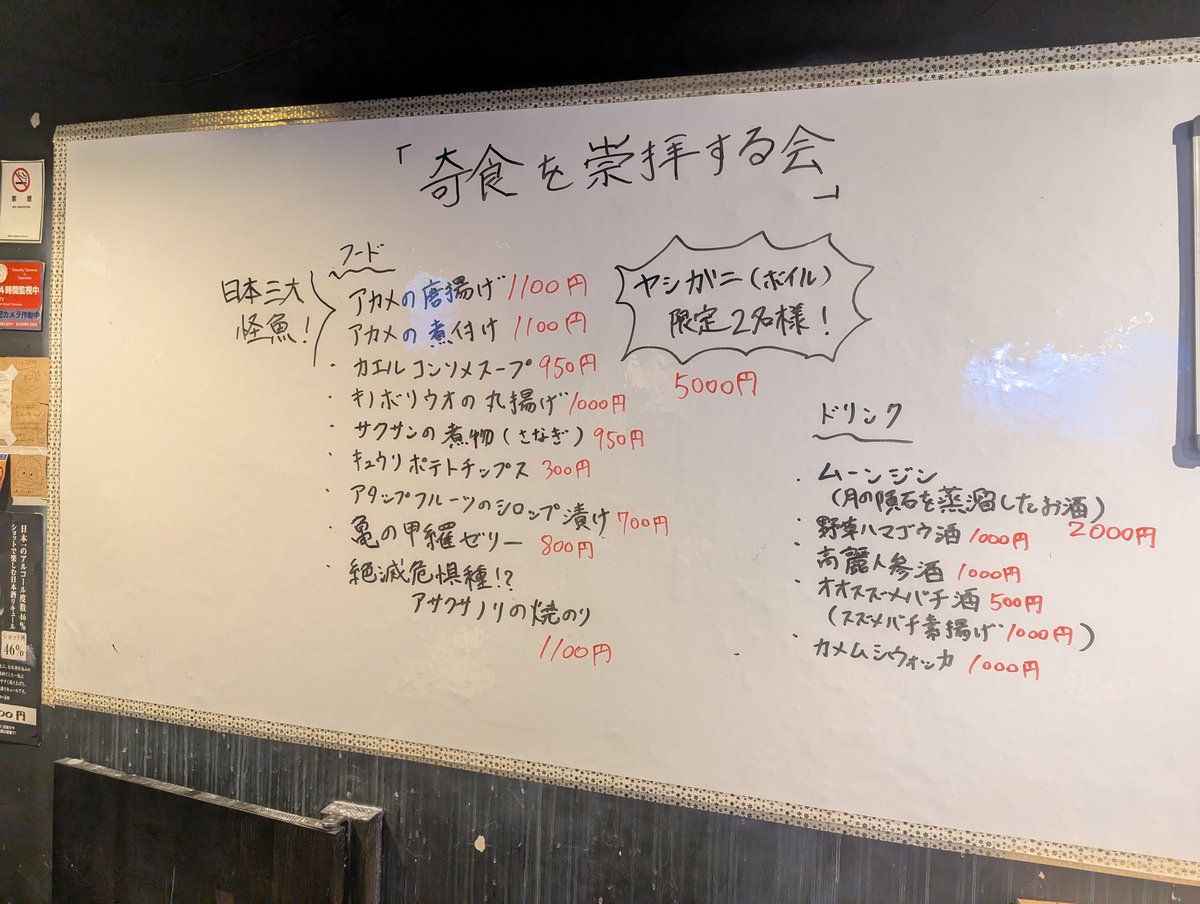 「奇食を崇拝する会」
フード
日本三大
怪魚!
アカメの唐揚げ 1100円
アカメの煮付け 1100円
・カエルコンソメスープ 950円
・キノボリウオの丸揚げ 1000円
・サクサンの煮物(さなぎ) 950円
・キュウリポテトチップス 300円
・アタップフルーツのシロップ漬け 700円
・亀の甲羅ゼリー 800円
・絶滅危惧種!?
アサクサノリの焼のり
1100円
ヤシガニ(ボイル)
限定2名様!
5000円
ドリンク
・ムーンジン
(月の隕石を蒸溜したお酒)
2000円
・野草ハマゴウ酒 1000円
・高麗人参酒 1000円
・オオスズメバチ酒 500円
(スズメバチ素揚げ 1000円)
・カメムシウォッカ 1000円
禁煙
NO SMOKING
Security Camera in Operation
4時間監視中
犯カメラ作動中
日本一のアルコール度数46%
ショットで楽しむ日本酒リキュール
46%
00円